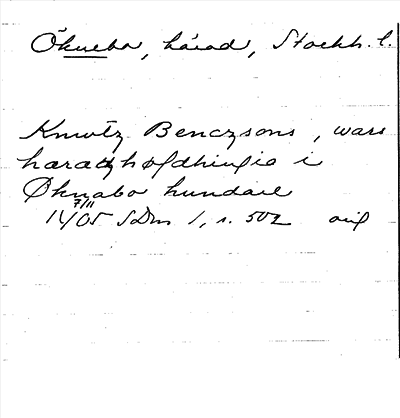 Öknebo, härad, Stockh. l.
Knwtz Benczsons, wars
haradzhøfdhingie i
Øknabo hundare
7/11
1405 SDns 1, s. 502 orig